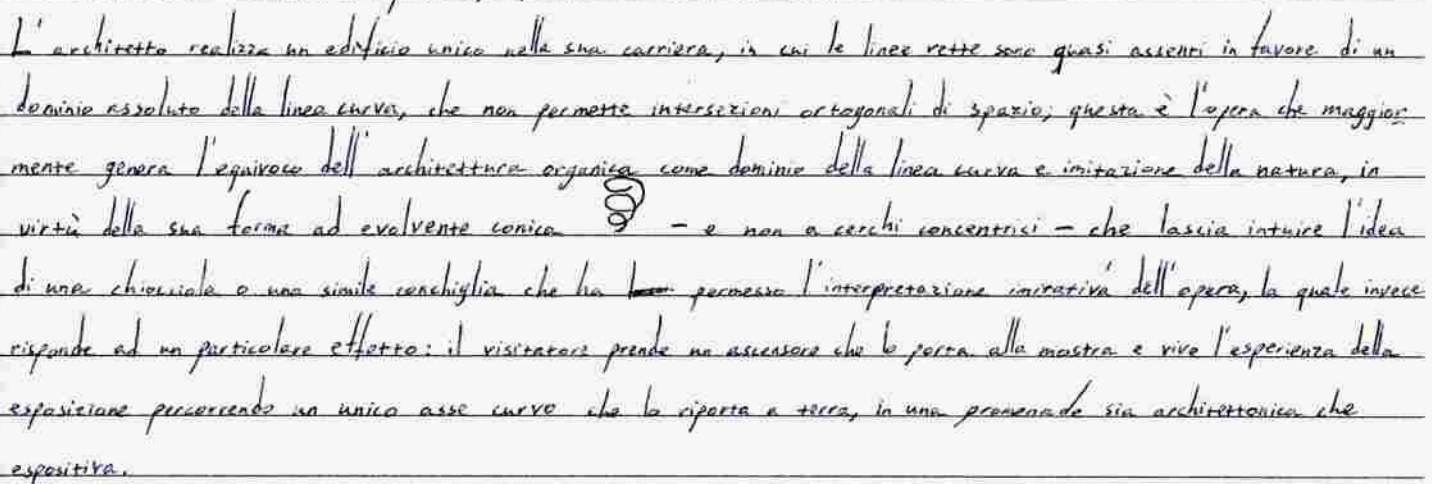 L'architetto realizza un edificio unico nella sua carriera, in cui le linee rette sono quasi assenti in favore di un
dominio assoluto della linea curva, che non permette intersezioni ortogonali di spazio; questa è l'opera che maggior
mente genera l'equivoco dell'architettura organica come dominio della linea curva e imitazione della natura, in
virtù della sua forma ad evolvente conica – e non a cerchi concentrici – che lascia intuire l'idea
di una chiocciola o una simile conchiglia che ha permesso l'interpretazione imitativa dell'opera, la quale invece
risponde ad un particolare effetto: il visitatore prende un ascensore che lo porta alla mostra e vive l'esperienza della
esposizione percorrendo un unico asse curvo che lo riporta a terra, in una promenade sia architettonica che
espositiva.